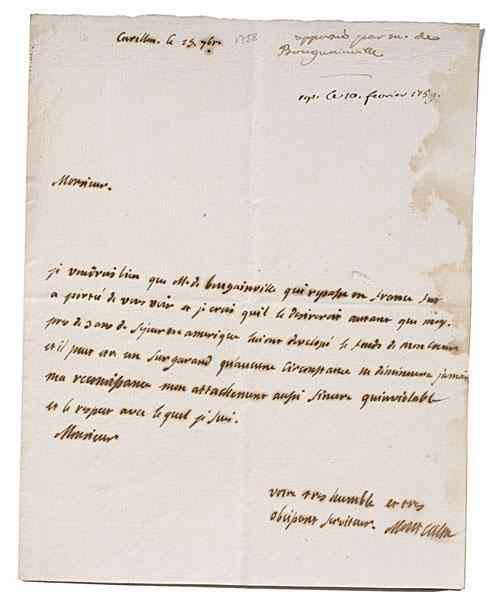 Carillon. le 25. 7bre 1758
apporté par m. de
Bougainville
rep. le 10. fevrier 1759.
Monsieur.
je voudrais bien que M. de bougainville qui repasse en france fut
a portée de vous voir et je crois qu'il le desireroit autant que moy.
pres de 3 ans de sejour en amerique lui ont developé le fonds de mon coeur
et il peut etre un sur garand qu'aucune circonstance ne diminuera jamais
ma reconnoissance mon attachement aussi sincere qu'inviolable
et le respect avec lequel je suis.
Monsieur
votre tres humble et tres
obeissant serviteur. Montcalm